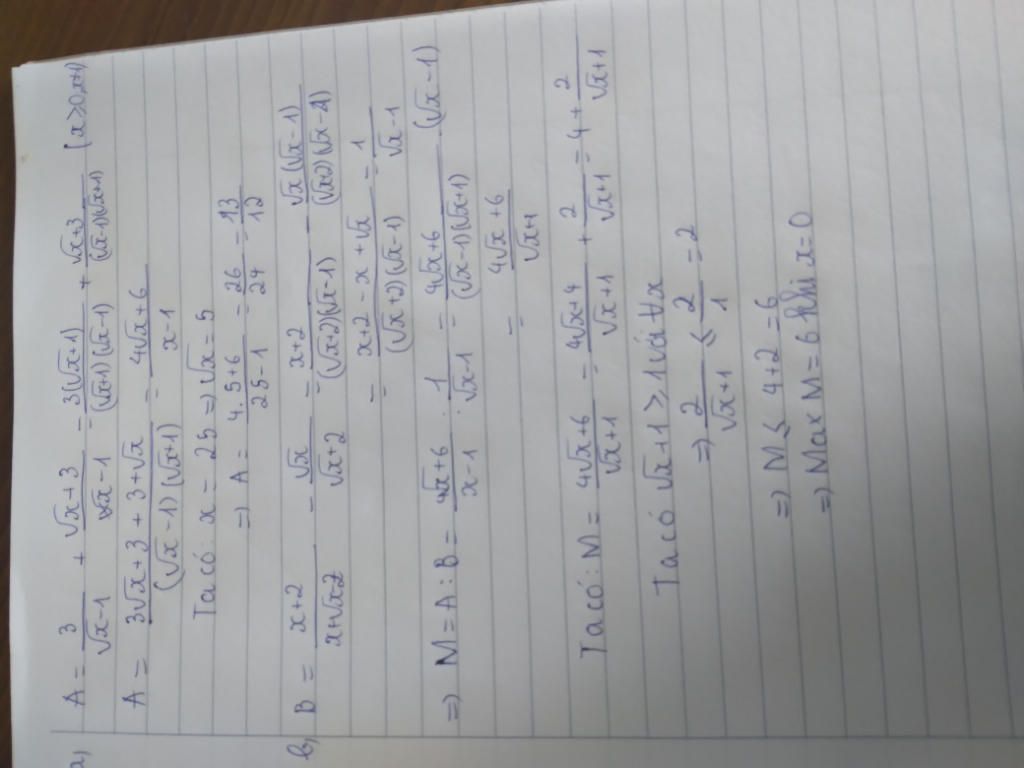 a) A = 3/(√x-1) + (√x+3)/(√x-1) = 3(√x+1)/((√x+1)(√x-1)) + (√x+3)/((√x-1)(√x+1)) (x≥0,x≠1)
A = (3√x+3+3+√x)/((√x-1)(√x+1)) = (4√x+6)/(x-1)
Ta có: x = 25 ⇒ √x = 5
⇒ A = (4.5+6)/(25-1) = 26/24 = 13/12
b) B = (x+2)/(x+√x-2) - √x/(√x+2) = (x+2)/((√x+2)(√x-1)) - √x(√x-1)/((√x+2)(√x-1))
= (x+2-x+√x)/((√x+2)(√x-1)) = 1/(√x-1)
⇒ M = A : B = (4√x+6)/(x-1) : 1/(√x-1) = (4√x+6)/((√x-1)(√x+1)) . (√x-1)
= (4√x+6)/(√x+1)
Ta có: M = (4√x+6)/(√x+1) = (4√x+4)/(√x+1) + 2/(√x+1) = 4 + 2/(√x+1)
Ta có √x+1 ≥ 1 với ∀x
⇒ 2/(√x+1) ≤ 2/1 = 2
⇒ M ≤ 4+2 = 6
⇒ Max M = 6 khi x = 0